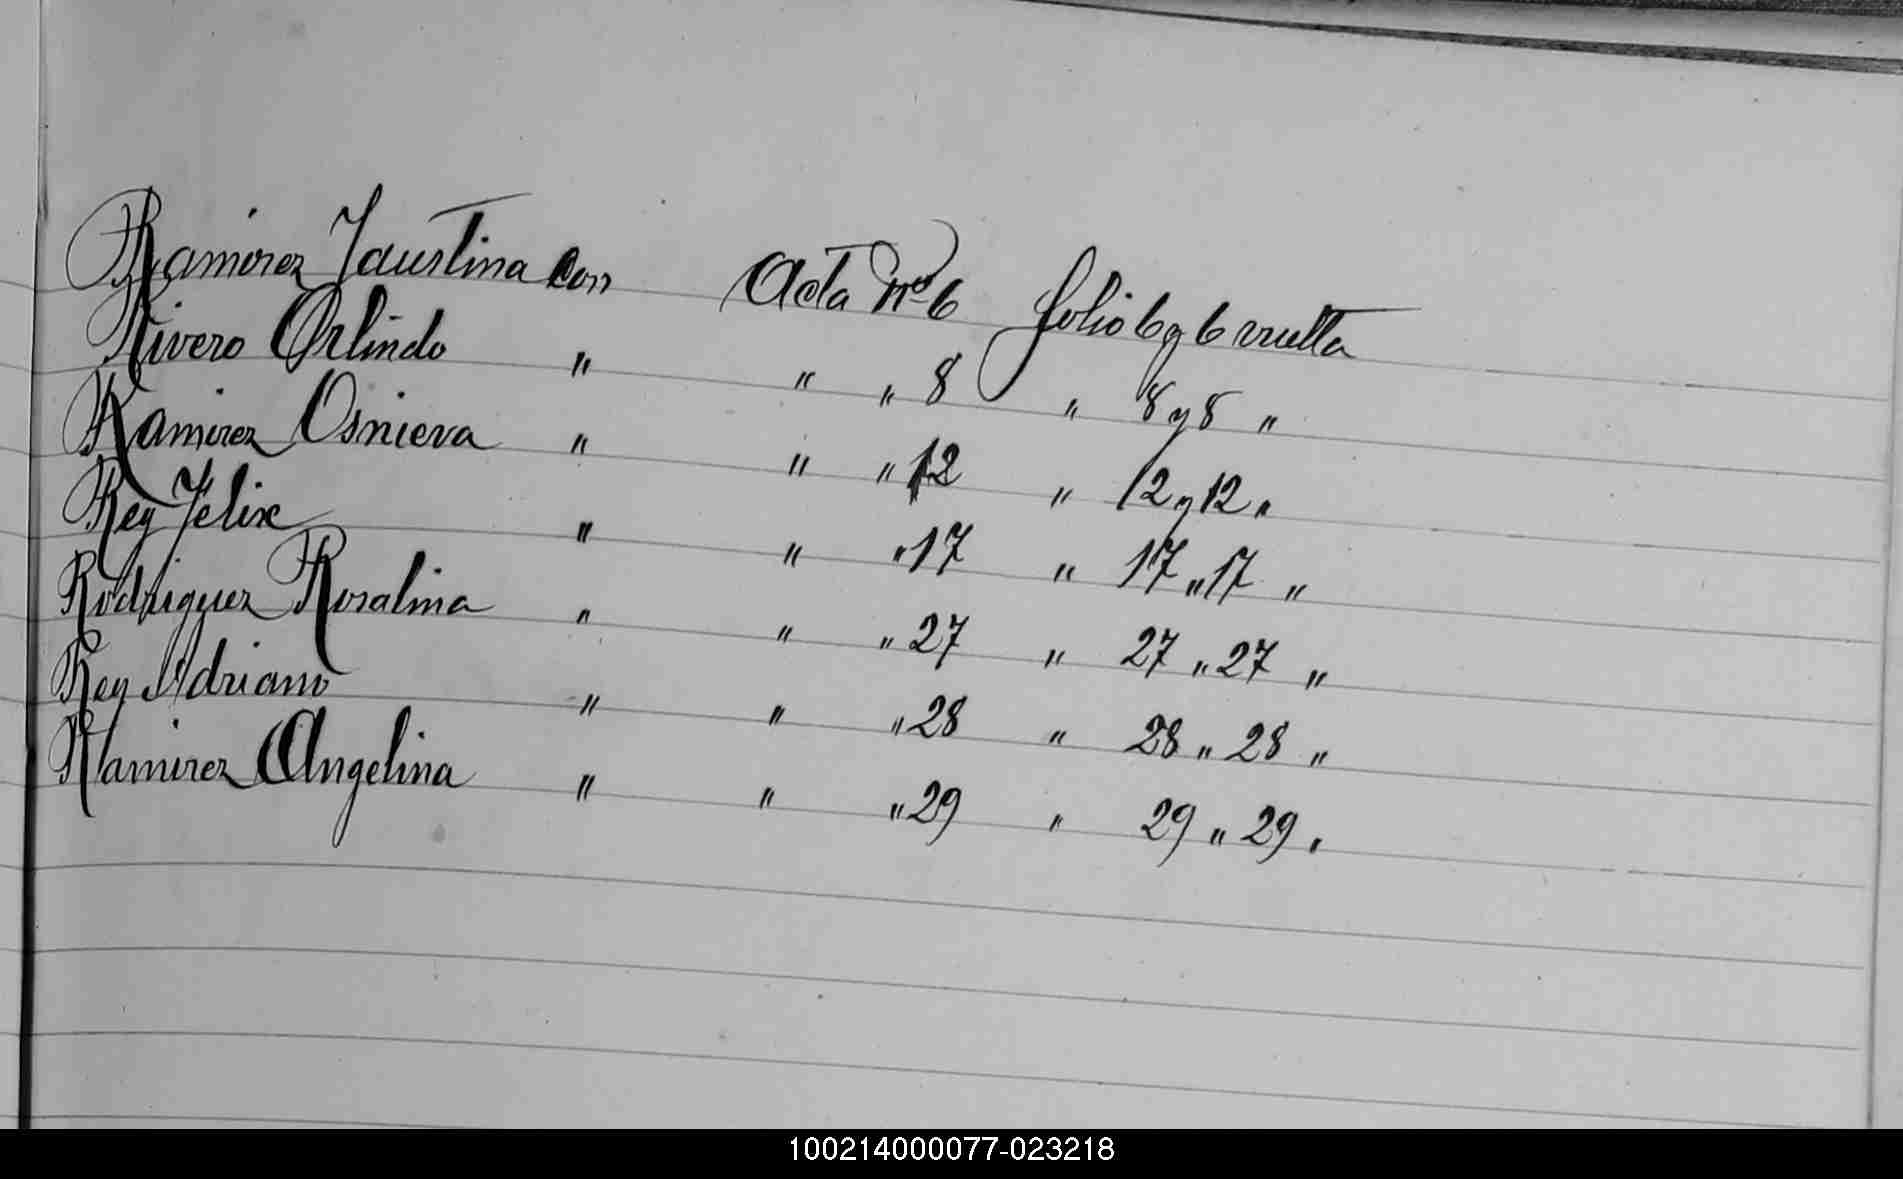 Ramirez Faustina con Acta Nº 6 folio 6 y 6 vuelta
Rivero Orlindo " " " 8 " 8 y 8 "
Ramirez Osnieva " " " 12 " 12 y 12 "
Rey Felix " " " 17 " 17 " 17 "
Rodriguez Rosalina " " " 27 " 27 " 27 "
Rey Adriano " " " 28 " 28 " 28 "
Ramirez Angelina " " " 29 " 29 " 29 "
100214000077-023218